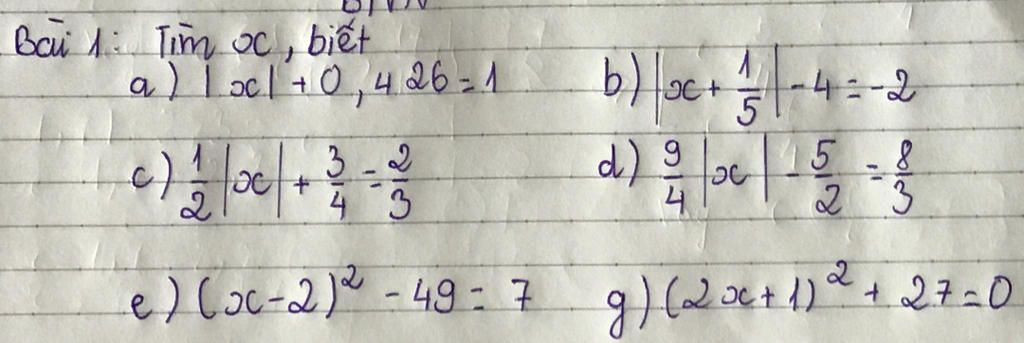 Bài 1: Tìm x, biết
a) |x| + 0,426 = 1 b) |x + 1/5| - 4 = -2
c) 1/2 |x| + 3/4 = 2/3 d) 9/4 |x| - 5/2 = 8/3
e) (x-2)² - 49 = 7 g) (2x+1)² + 27 = 0